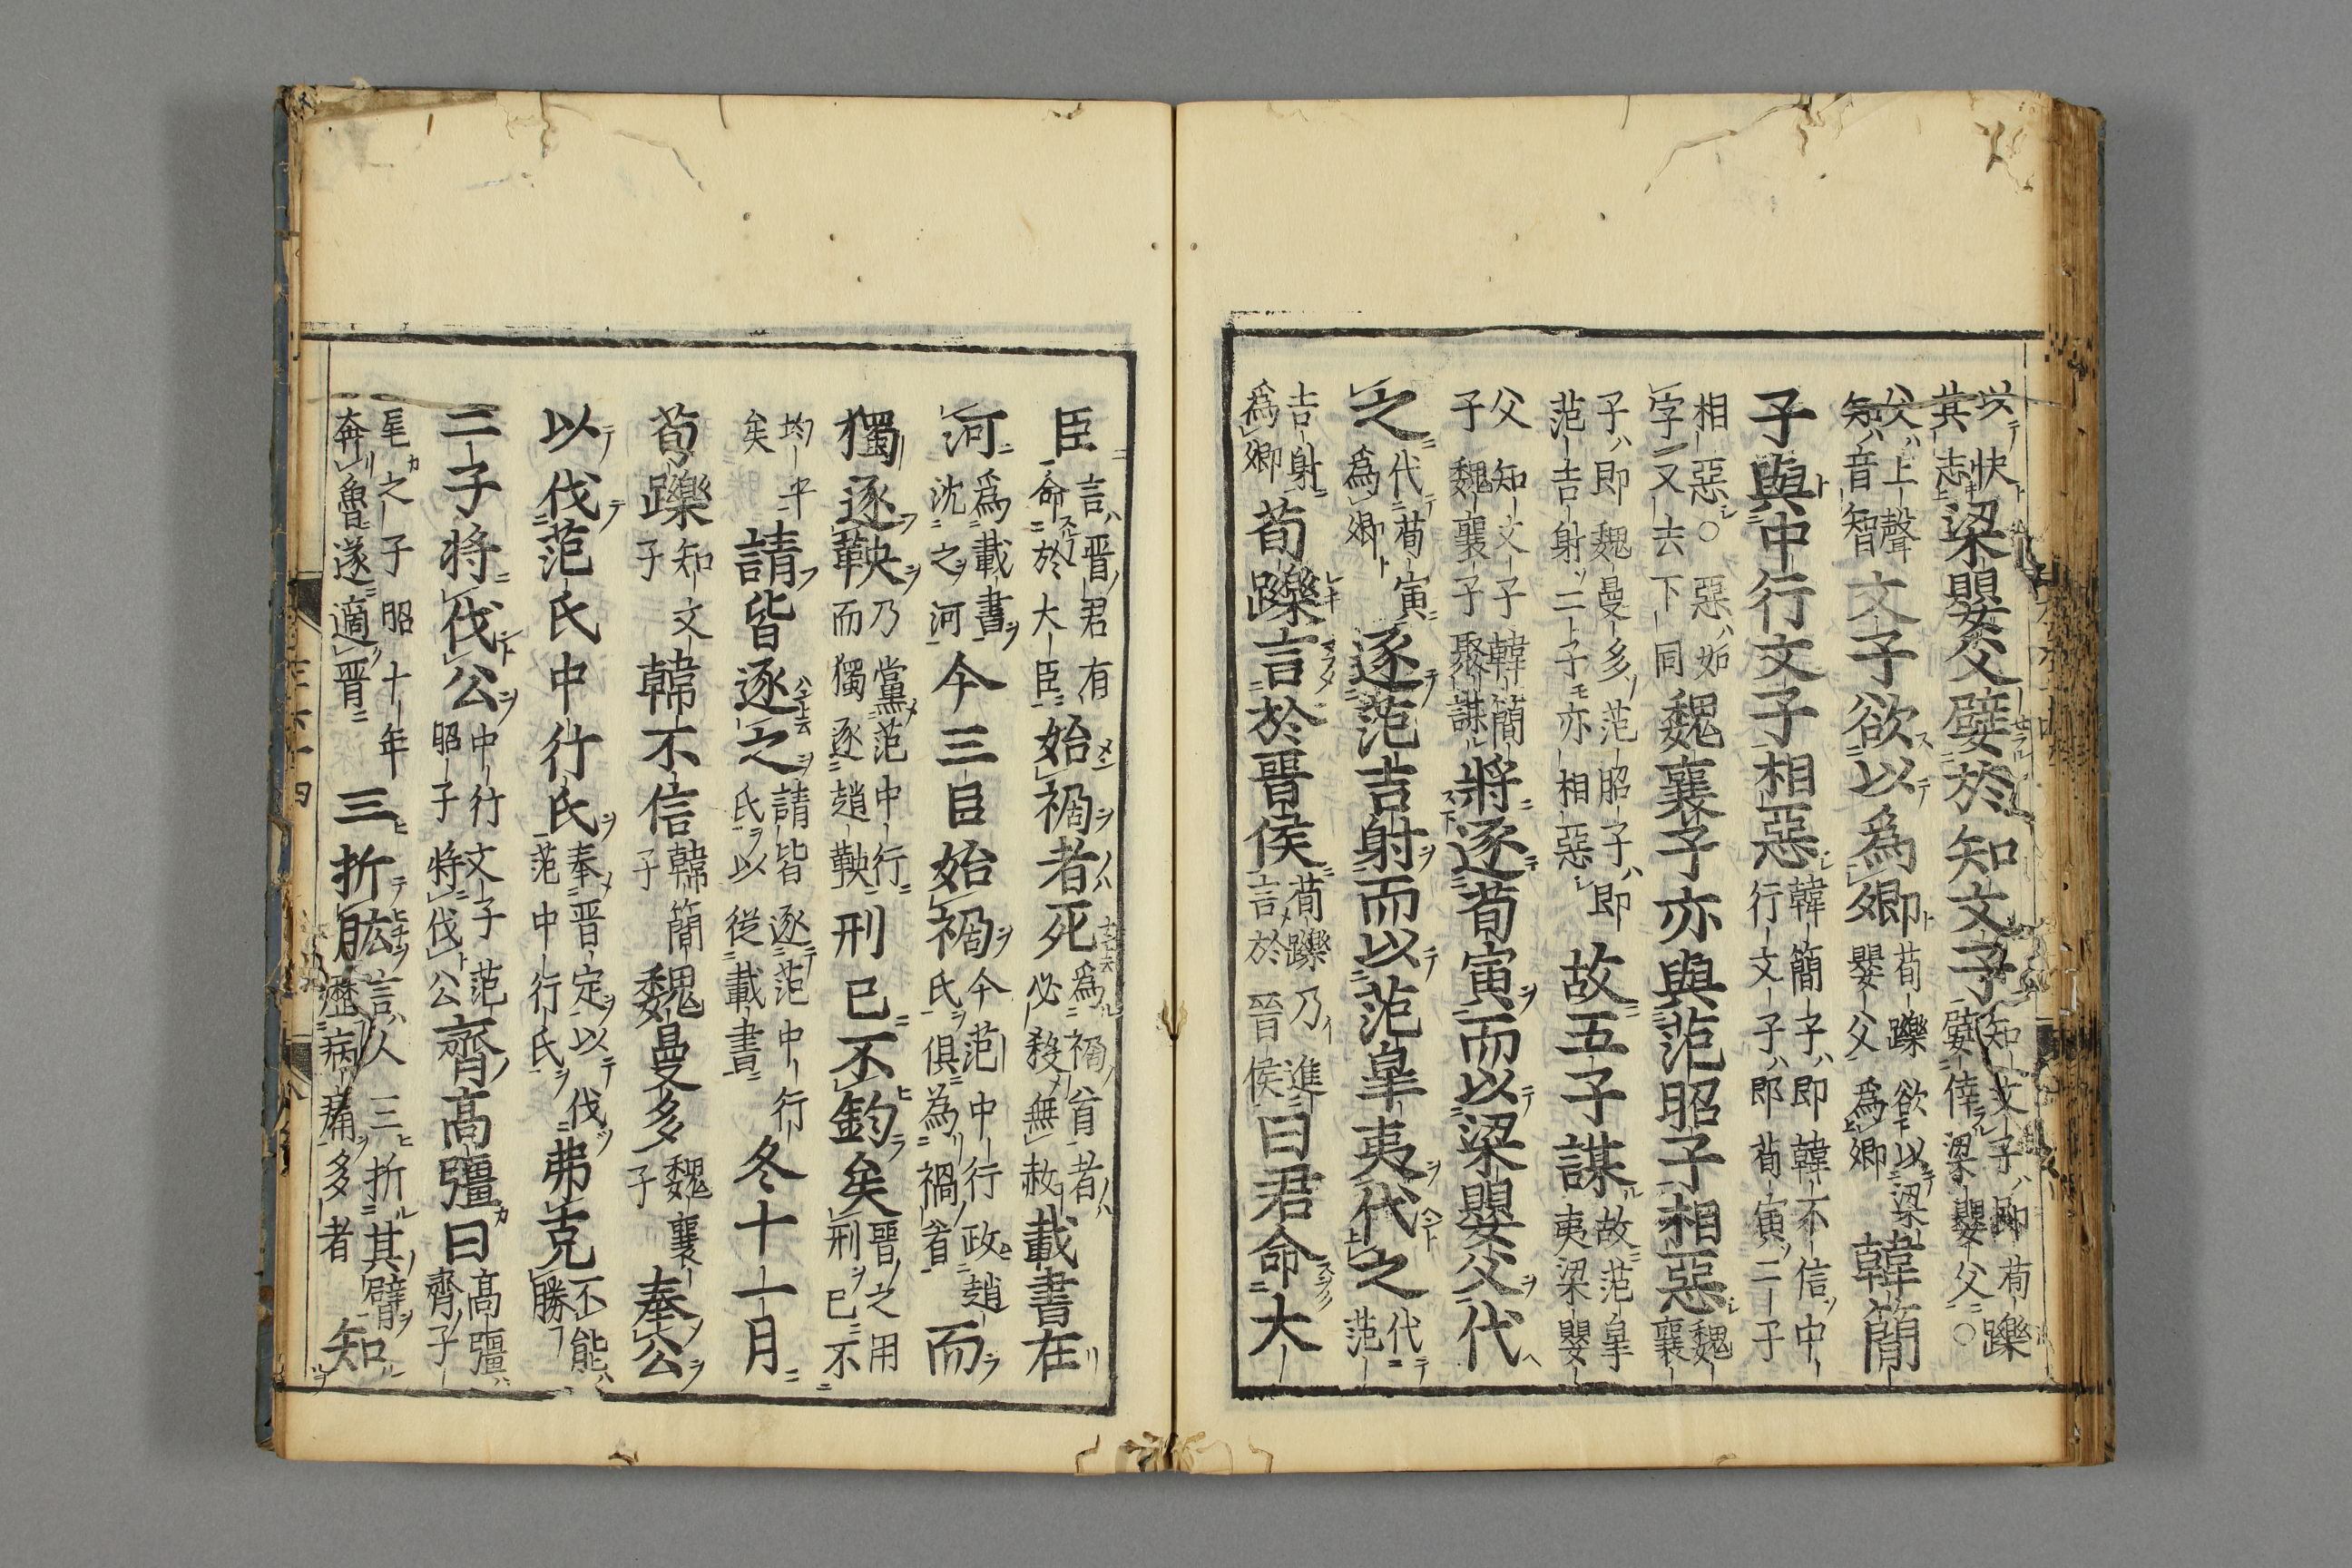 以快其志梁嬰父嬖於知文子知文子即荀躒嬖倖梁嬰父○
父上聲知音智文子欲以為卿荀躒欲以梁嬰父為卿韓簡
子與中行文子相惡韓簡子即韓不信中行文子即荀寅二子
相惡○惡如字又去下同魏襄子亦與范昭子相惡魏襄
子即魏曼多范昭子即范吉射二子亦相惡故五子謀故范皋夷梁嬰
父知文子韓簡子魏襄子聚謀將逐荀寅而以梁嬰父代
之代荀寅為卿逐范吉射而以范皋夷代之代范
吉射為卿荀躒言於晉侯荀躒乃進言於晉侯曰君命大
臣言晉君有命於大臣始禍者死為禍首者必殺無赦載書在
河為載書沈之河今三臣始禍今范中行政趙氏俱為禍首而
獨逐鞅乃黨范中行而獨逐趙鞅刑已不鈞矣晉之用刑已不
均平矣請皆逐之請皆逐范中行氏以從載書冬十一月
荀躒知文子韓不信韓簡子魏曼多魏襄子奉公
以伐范氏中行氏奉晉定以伐范中行氏弗克不能勝
二子將伐公中行文子范昭子將伐公齊高彊曰高彊齊子
尾之子昭十年奔魯遂適晉三折肱言人三折其臂歷病痛多者知